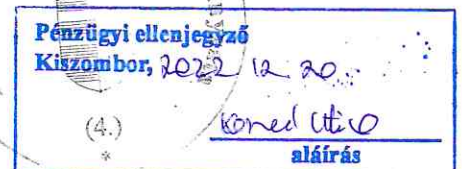 Pénzügyi ellenjegyző
Kiszombor, 2022 12 20.
(4.)
*
aláírás